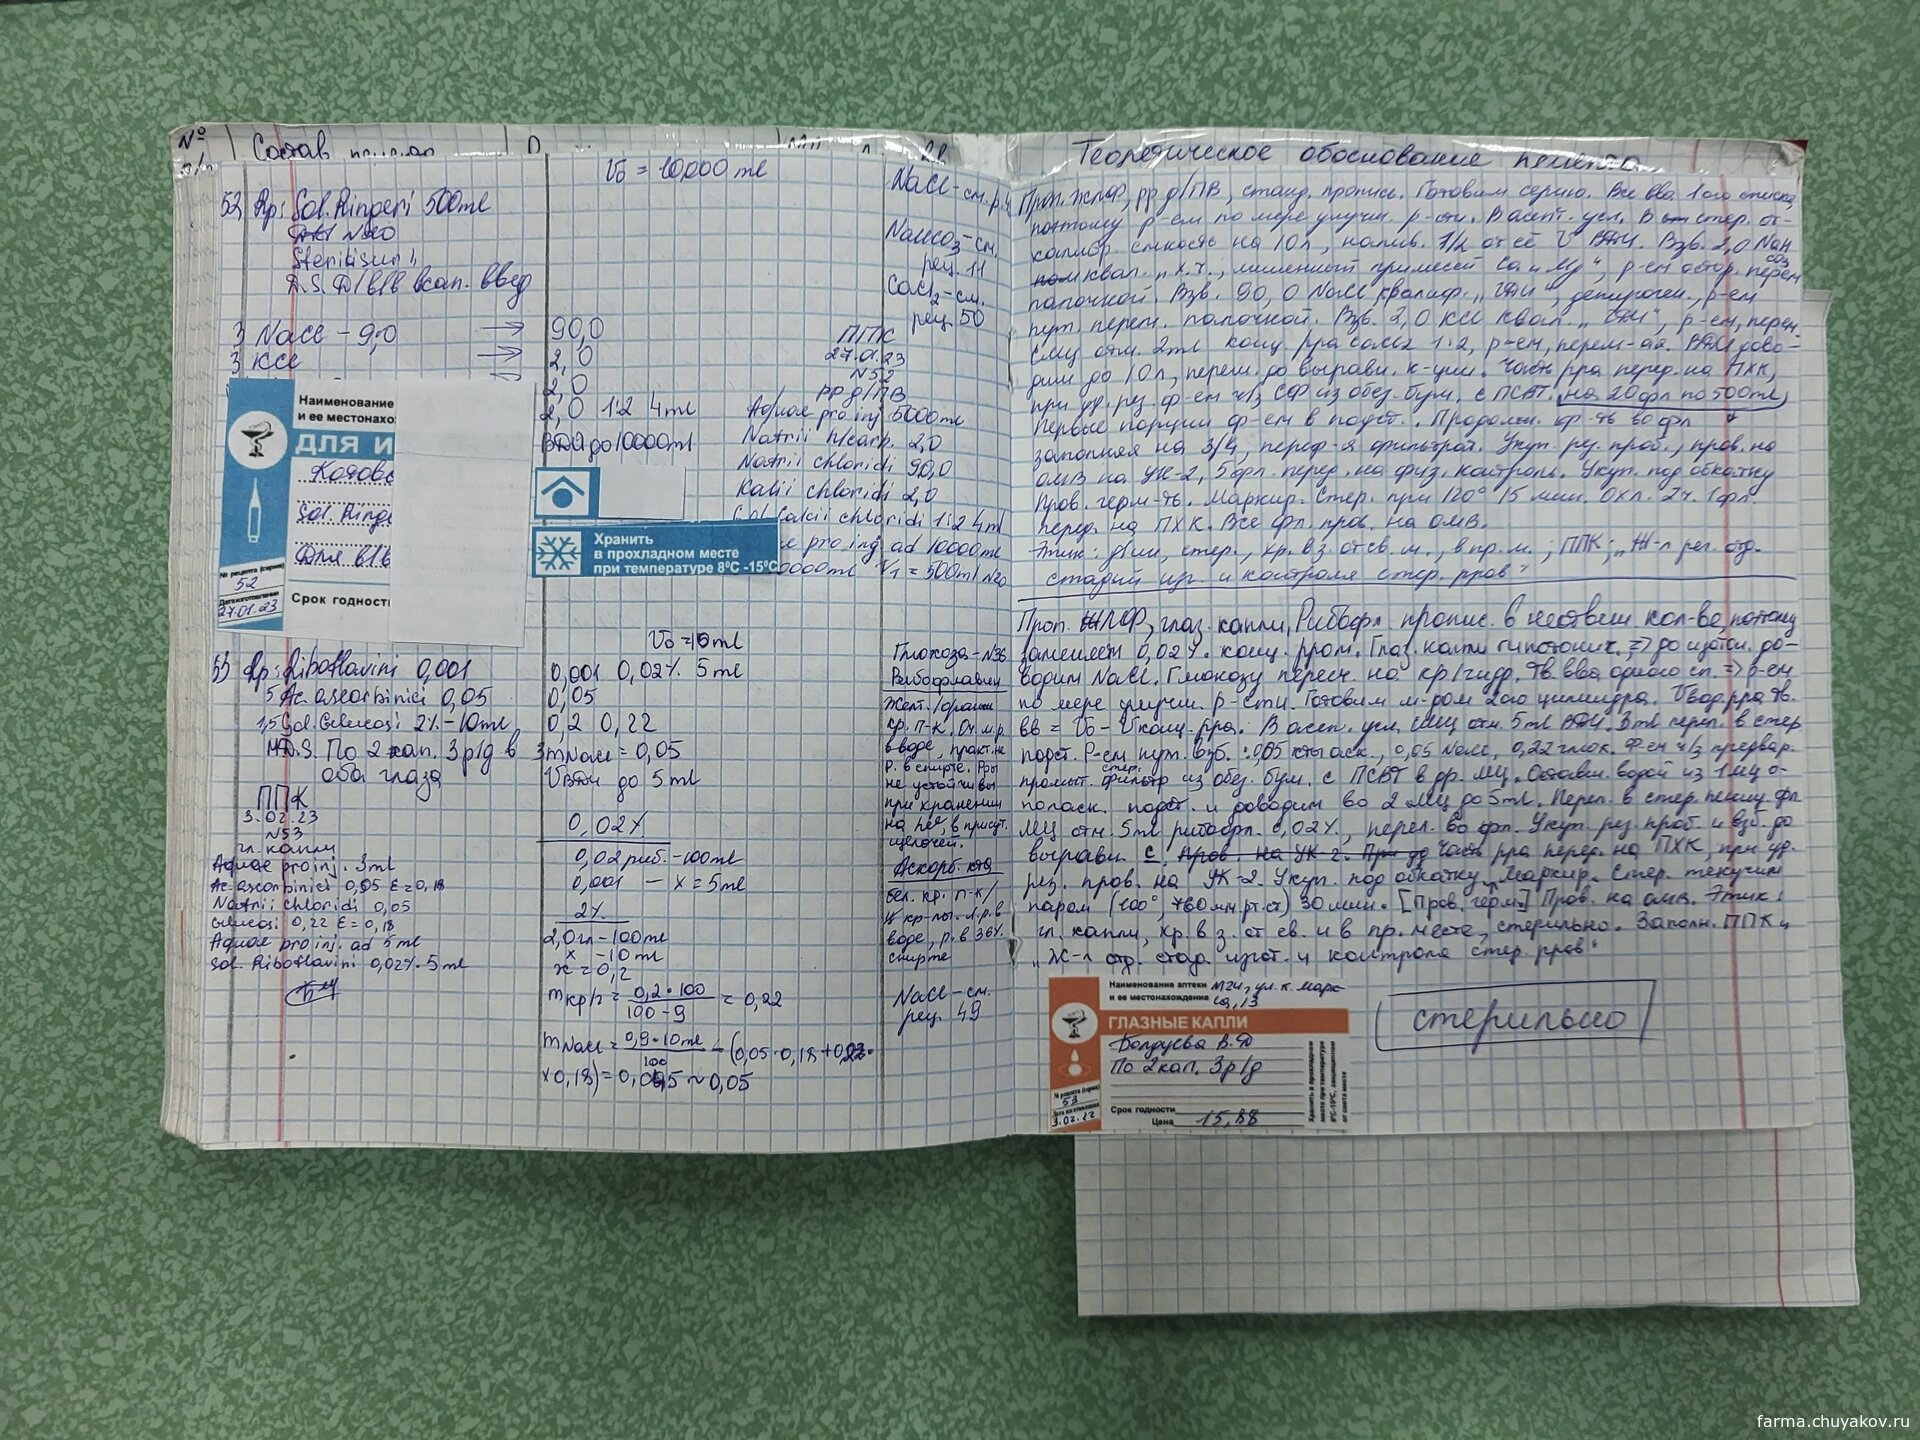 №
п/п
Состав
Теоретическое обоснование
V₀ = 10000 ml
52 Rp: Sol. Ringeri 500 ml
N20
Sterilis
D.S. Д/в/в кап. введ
3 NaCl - 9,0 → 90,0
3 KCl → 2,0
2,0
2,0 1:2 4 ml
до 10000 ml
NaCl - см. р.
NaHCO₃ - см.
рец. 11
CaCl₂ - см.
рец. 50
ППК
27.01.23
N52
рр д/ПВ
Aquae pro inj 5000 ml
Natrii h/carb. 2,0
Natrii chloridi 90,0
Kalii chloridi 2,0
calcii chloridi 1:2 4 ml
pro inj ad 10000 ml
V₁ = 500 ml N20
Наименование
и ее местонахо
ДЛЯ И
Sol. Ringe
Для в/в
№ рецепта (серии)
52
Дата изготовления
27.01.23
Срок годност
Хранить
в прохладном месте
при температуре 8⁰С -15⁰С
Проп. ЖЛФ, рр д/ПВ, станд. пропись. Готовим серию. Все вва 1ого списка,
поэтому р-ем по мере улучш. р-сти. В асепт. усл. В стер. от-
калибр. емкость на 10 л, налив. 1/2 от её V. Взв. 2,0 NaH
CO₃
квал. „х.ч., лишенный примесей Ca и Mg", р-ем остор. перем
палочкой. Взв. 90,0 NaCl квалиф., депироген., р-ем
пут. перем. палочкой. Взв. 2,0 KCl квал., р-ем, перем
отм. 2ml конц. рра CaCl₂ 1:2, р-ем, перем-ая. дово-
дим до 10 л, перем. до выравн. к-ции. Часть рра перед. на ПХК,
при уд. рез. ф-ем ч/з СФ из обез. бум. с ПСВТ. на 20 фл по 500 ml,
Первые порции ф-ем в подст. Продолж. ф-ть во фл
заполняя на 3/4, переф-я фильтрат. Укуп. рез. проб., пров. на
ОМВ на УК-2, 5 фл. перед. на физ. контроль. Укуп. под обкатку
Пров. герм-ть. Маркир. Стер. при 120° 15 мин. Охл. 2ч. 1 фл
перед. на ПХК. Все фл. пров. на ОМВ.
Этик: д/ин, стер., хр. в з. от св. м., в пр. м.; ППК; „Ж-л рег. отд.
стадий изг. и контроля стер. рров"
53 Rp: Riboflavini 0,001
5 Ac. ascorbinici 0,05
1,5 Sol. Glucosi 2% - 10ml
M.D.S. По 2 кап. 3 р/д в
оба глаза
ППК
3.02.23
N53
гл. капли
Aquae pro inj. 3ml
Ac. ascorbinici 0,05 E=0,18
Natrii chloridi 0,05
Glucosi 0,22 E=0,18
Aquae pro inj. ad 5ml
Sol. Riboflavini 0,02% 5ml
0,001 0,02% 5ml
0,05
0,2 0,22
mNaCl = 0,05
до 5 ml
0,02%
0,02 риб. - 100ml
0,001 - x = 5ml
2%
2,0 гл - 100ml
x - 10 ml
x = 0,2
mкр/г = 0,2 · 100 / 100 - 9 = 0,22
mNaCl = 0,9 · 10ml / 100 - (0,05 · 0,18 +
x 0,18) = ~ 0,05
Глюкоза - N36
Рибофлавин
Желт./оранж
кр. п-к. Оч. м. р.
в воде, практ. не
р. в спирте. Рры
не устойчивы
при хранении
на св., в присут.
щелочей.
Аскорб. к-та
бел. кр. п-к/
кр-лы. л. р. в
воде, р. в 96%
спирте
NaCl - см.
рец. 49
Проп. ЖЛФ, глаз. капли, Рибофл пропис. в кол-ве потому
заменяем 0,02% конц. рром. Глаз. капли гипотонич. => до изотон. до-
водим NaCl. Глюкозу пересч. на кр/гидр. Тв вва одного сп. => р-ем
по мере улучш. р-сти. Готовим м-дом 2ого цилиндра. Vвод. рра тв.
вв = V₀ - Vконц. рра. В асеп. усл. МЦ отм. 5ml. 3ml перел. в стер
подст. Р-ем пут. взб. 0,05 к-ты аск., 0,05 NaCl, 0,22 глюк. Ф-ем ч/з предвар.
промыт. стер. фильтр из обез. бум. с ПСВТ в др. МЦ. Оставш. водой из 1 МЦ о-
поласк. подст. и доводим во 2 МЦ до 5ml. Перел. в стер. фл
МЦ отм. 5ml рибофл. 0,02%, перел. во фл. Укуп. рез. проб. и взб. до
выравн. с. Пров. на УК-2. Часть рра перед. на ПХК, при уд.
рез. пров. на УК-2. Укуп. под обкатку. Маркир. Стер. текучим
паром (100°, 760 мм рт. ст) 30 мин. [Пров. герм.] Пров. на ОМВ. Этик:
гл. капли, хр. в з. от св. и в пр. месте, стерильно. Заполн. ППК и
„Ж-л отд. стад. изгот. и контроля стер. рров"
Наименование аптеки
и ее местонахождение
ГЛАЗНЫЕ КАПЛИ
Болдуева В.Д
По 2 кап. 3р/д
№ рецепта (серии)
53
Дата изготовления
3.02.22
Срок годности
Цена 15,88
Хранить в прохладном
месте при температуре
8⁰С-15⁰С, защищенном
от света месте
стерильно
farma.chuyakov.ru